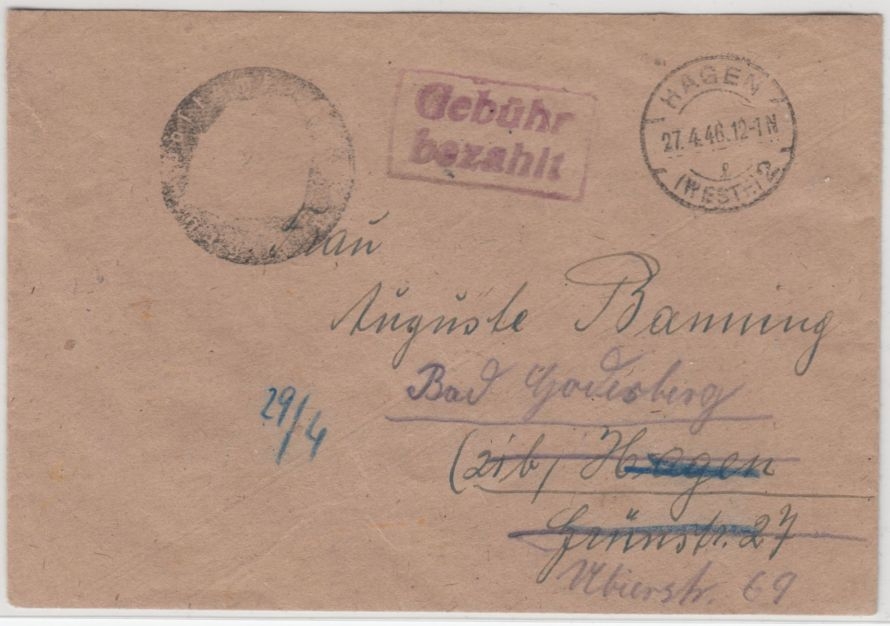 Gebühr
bezahlt
HAGEN
27.4.46.12-1N
(WESTF.) 2
Frau
Auguste Banning
Bad Godesberg
29/4
(21b) Hagen
Grünstr. 27
Ubierstr. 69